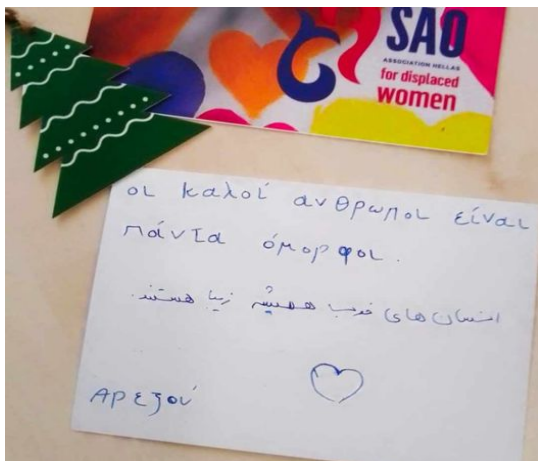 SAO
ASSOCIATION HELLAS
for displaced
women
οι καλοί ανθρωποι είναι
πάντα όμορφοι.
انسان های خوب همیشه زیبا هستند.
Αρεζού